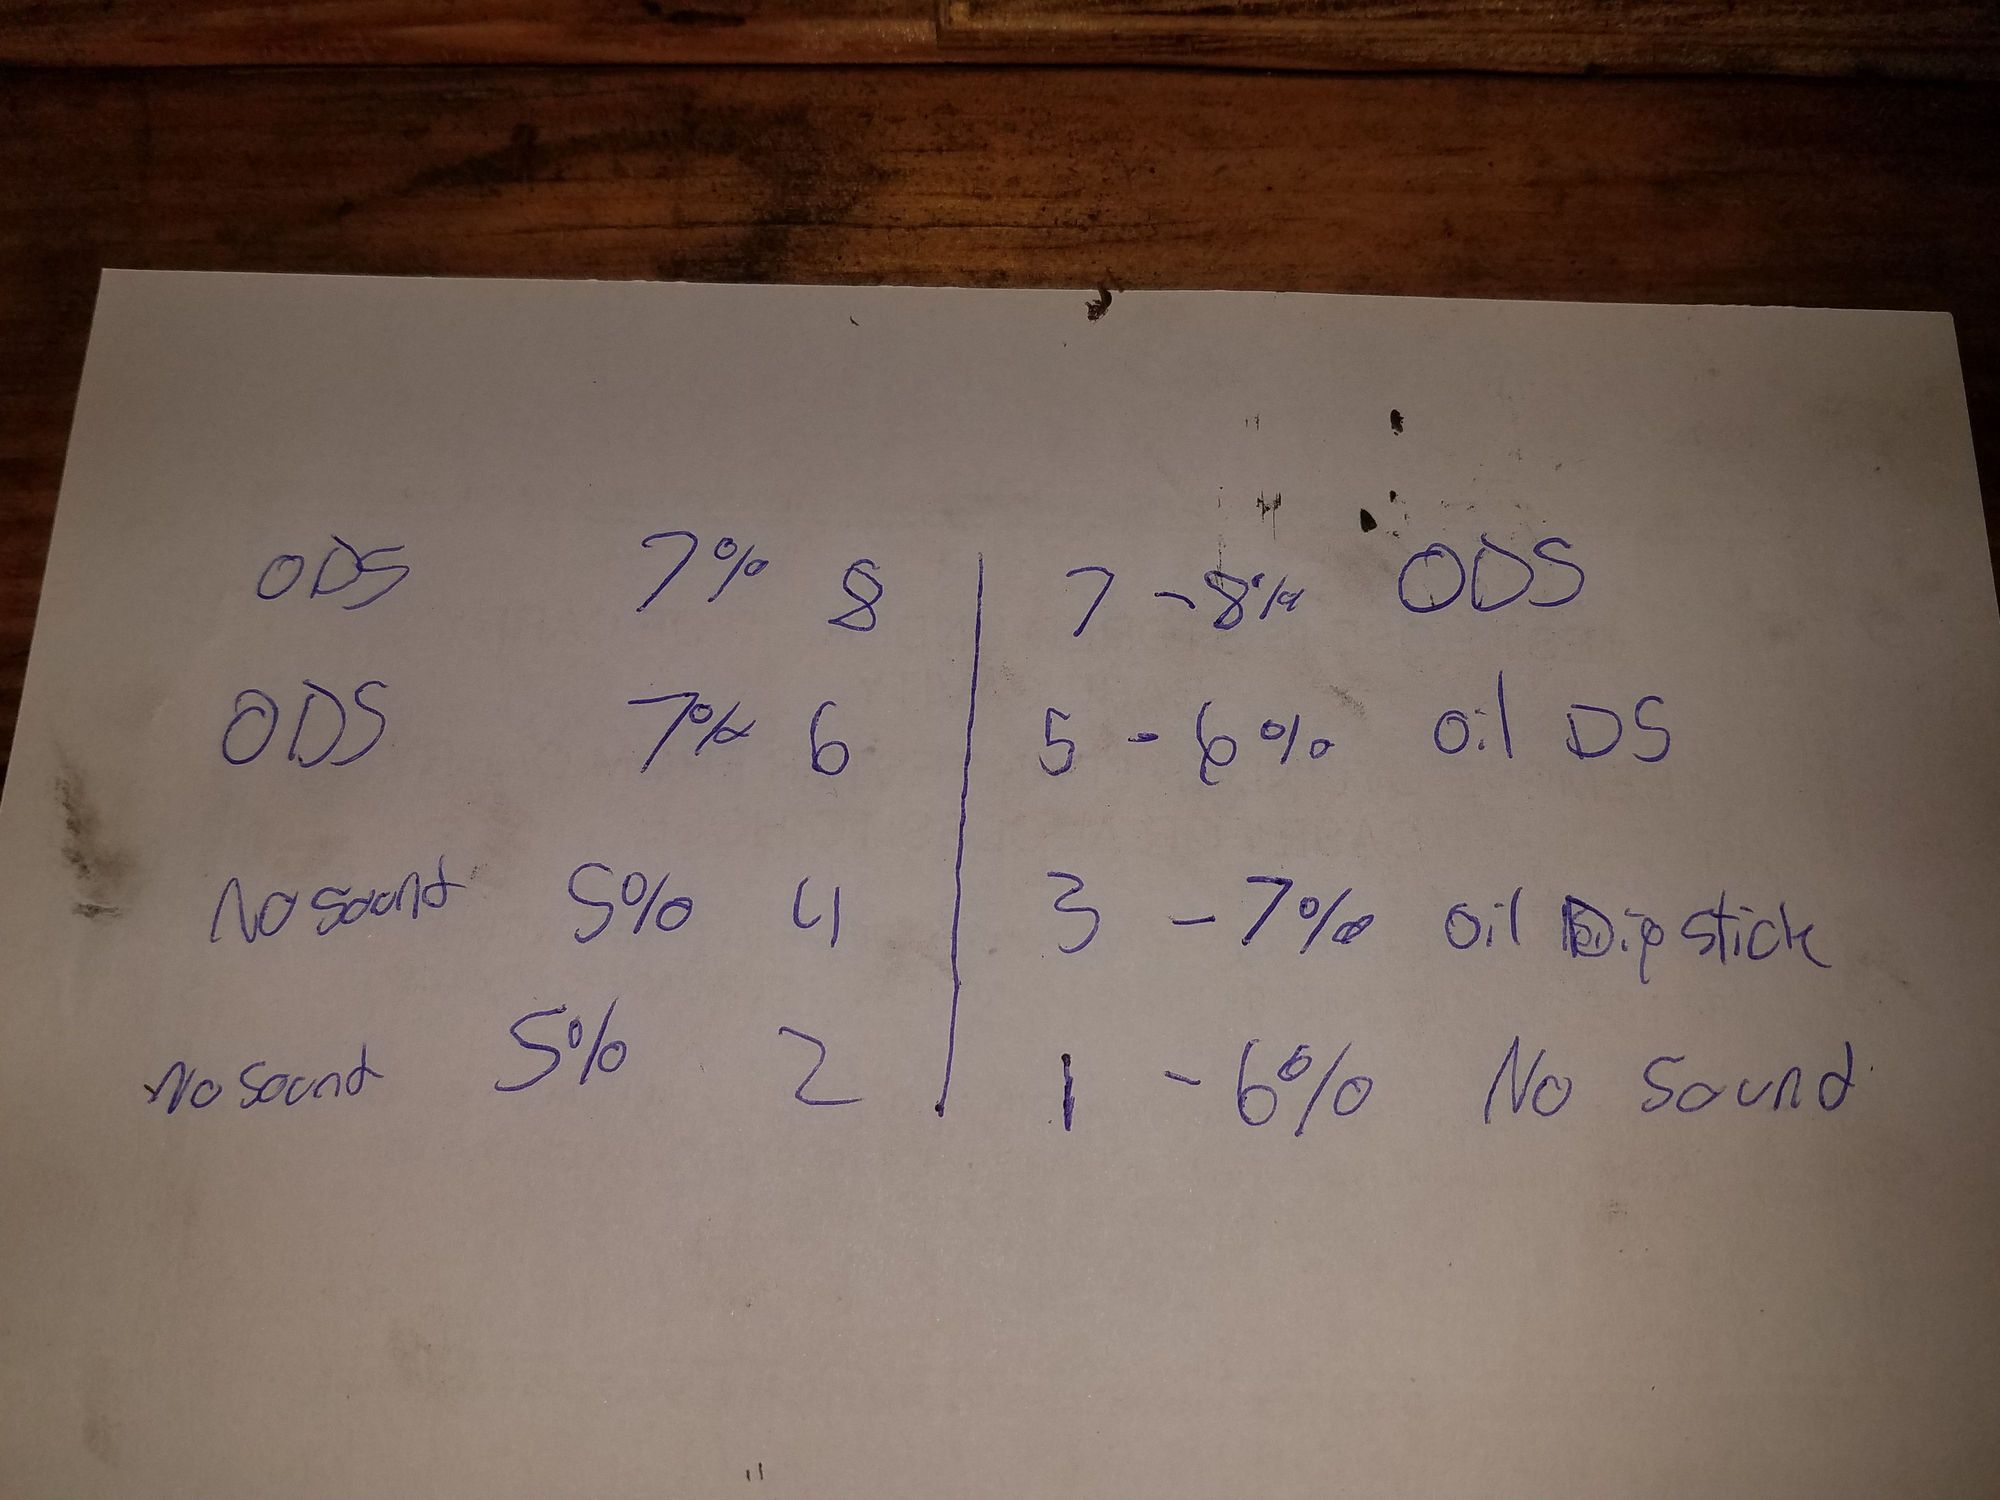 ODS 7% 8 7 - 8% ODS
ODS 7% 6 5 - 6% Oil DS
No sound 5% 4 3 - 7% Oil Dipstick
No sound 5% 2 1 - 6% No Sound